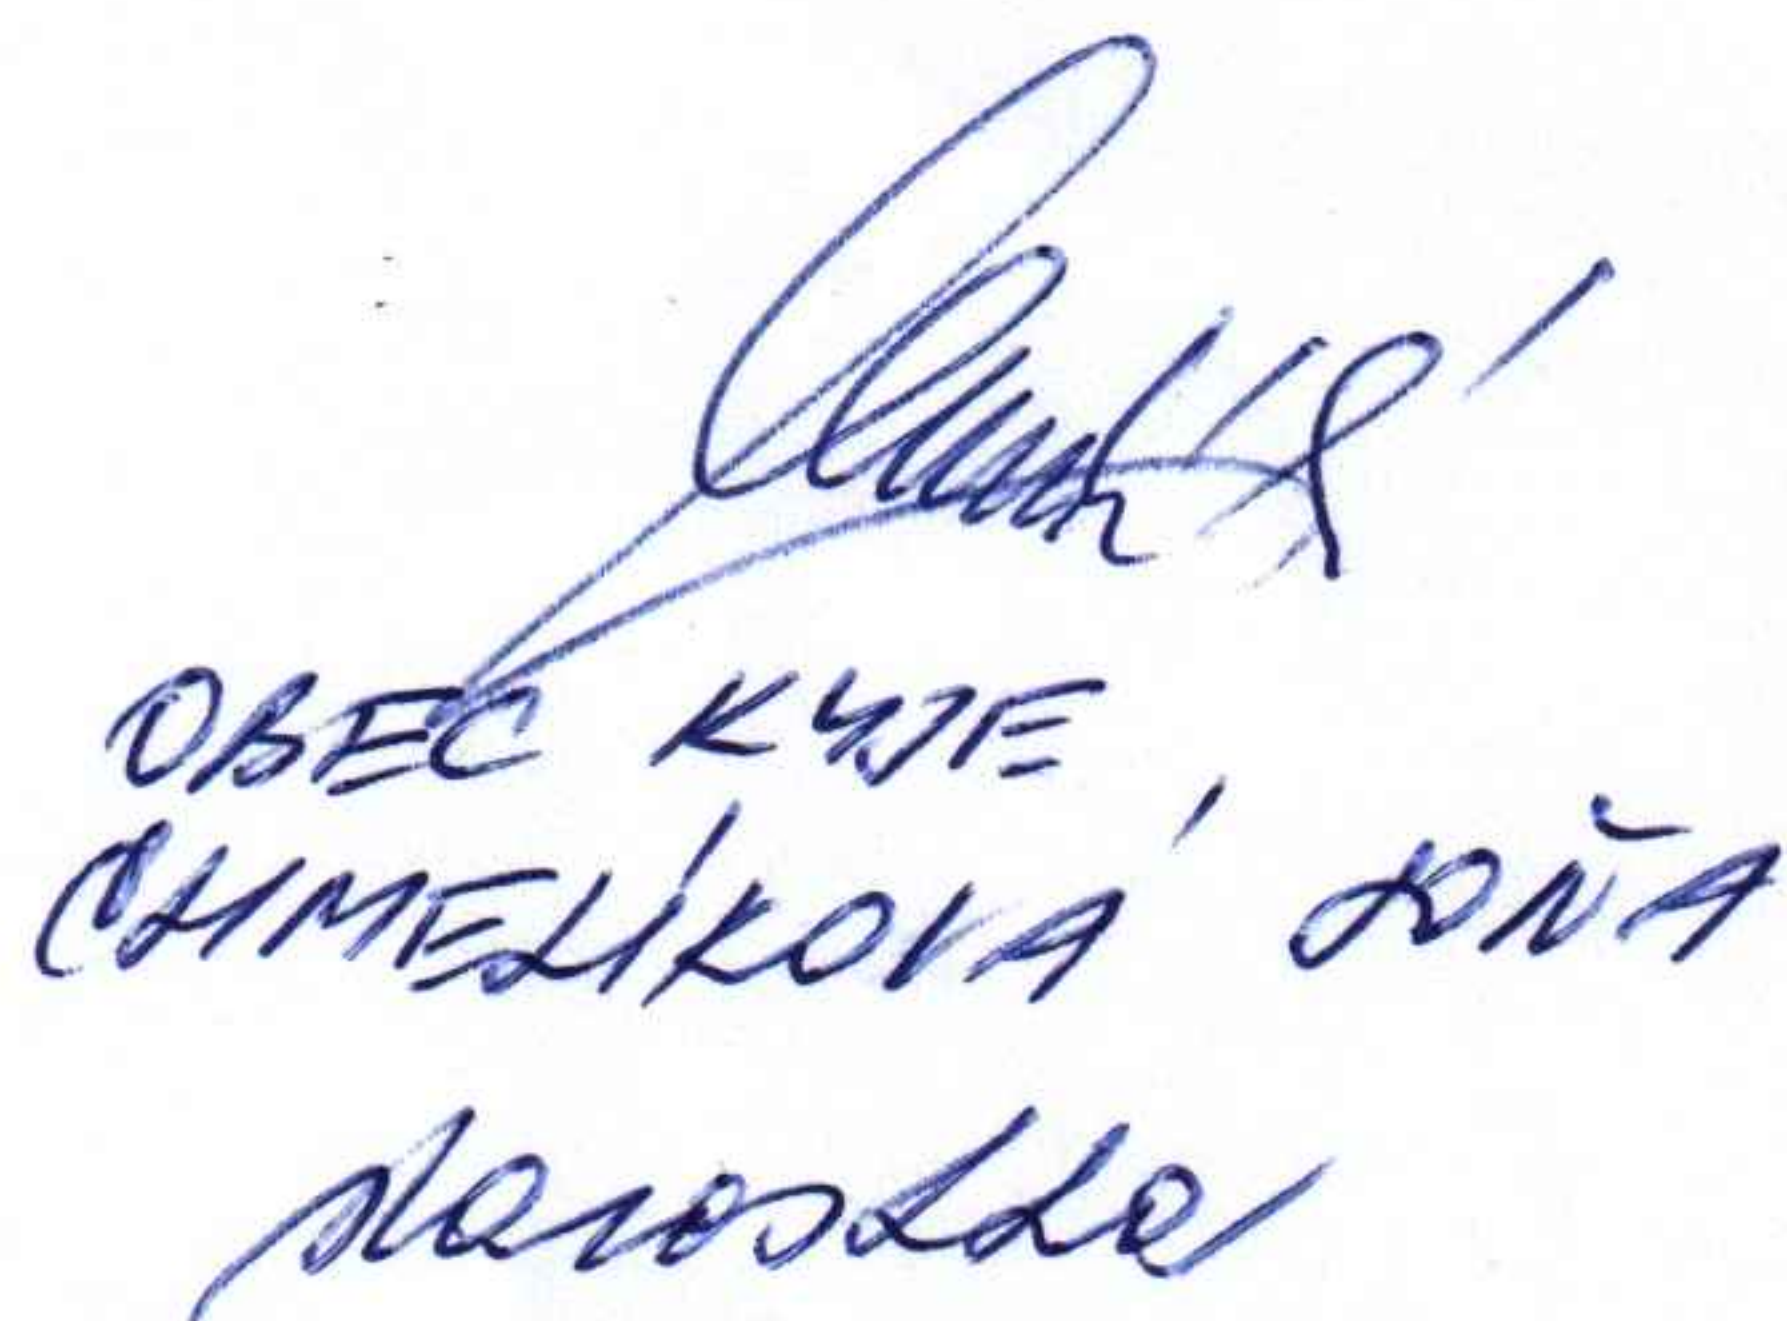 OBEC KYJE
CHMELÍKOVÁ SOŇA
starostka